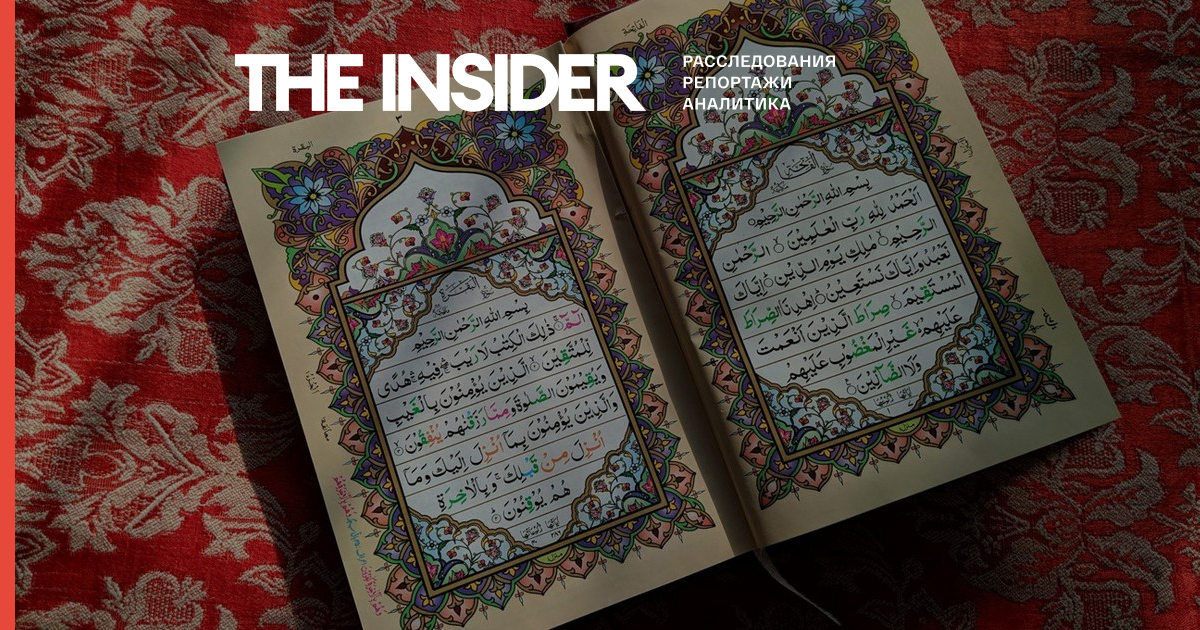 THE INSIDER
РАССЛЕДОВАНИЯ
РЕПОРТАЖИ
АНАЛИТИКА
بِسْمِ اللهِ الرَّحْمٰنِ الرَّحِيْمِ
اَلْحَمْدُ لِلّٰهِ رَبِّ الْعٰلَمِيْنَ الرَّحْمٰنِ
الرَّحِيْمِ مٰلِكِ يَوْمِ الدِّيْنِ اِيَّاكَ
نَعْبُدُ وَاِيَّاكَ نَسْتَعِيْنُ اِهْدِنَا الصِّرَاطَ
الْمُسْتَقِيْمَ صِرَاطَ الَّذِيْنَ اَنْعَمْتَ
عَلَيْهِمْ غَيْرِ الْمَغْضُوْبِ عَلَيْهِمْ
وَلَا الضَّآلِّيْنَ
البقرة
٢
بِسْمِ اللهِ الرَّحْمٰنِ الرَّحِيْمِ
الٓمّٓ ذٰلِكَ الْكِتٰبُ لَا رَيْبَ فِيْهِ هُدًى
لِّلْمُتَّقِيْنَ الَّذِيْنَ يُؤْمِنُوْنَ بِالْغَيْبِ
وَيُقِيْمُوْنَ الصَّلٰوةَ وَمِمَّا رَزَقْنٰهُمْ يُنْفِقُوْنَ
وَالَّذِيْنَ يُؤْمِنُوْنَ بِمَآ اُنْزِلَ اِلَيْكَ وَمَآ
اُنْزِلَ مِنْ قَبْلِكَ وَبِالْاٰخِرَةِ
هُمْ يُوْقِنُوْنَ